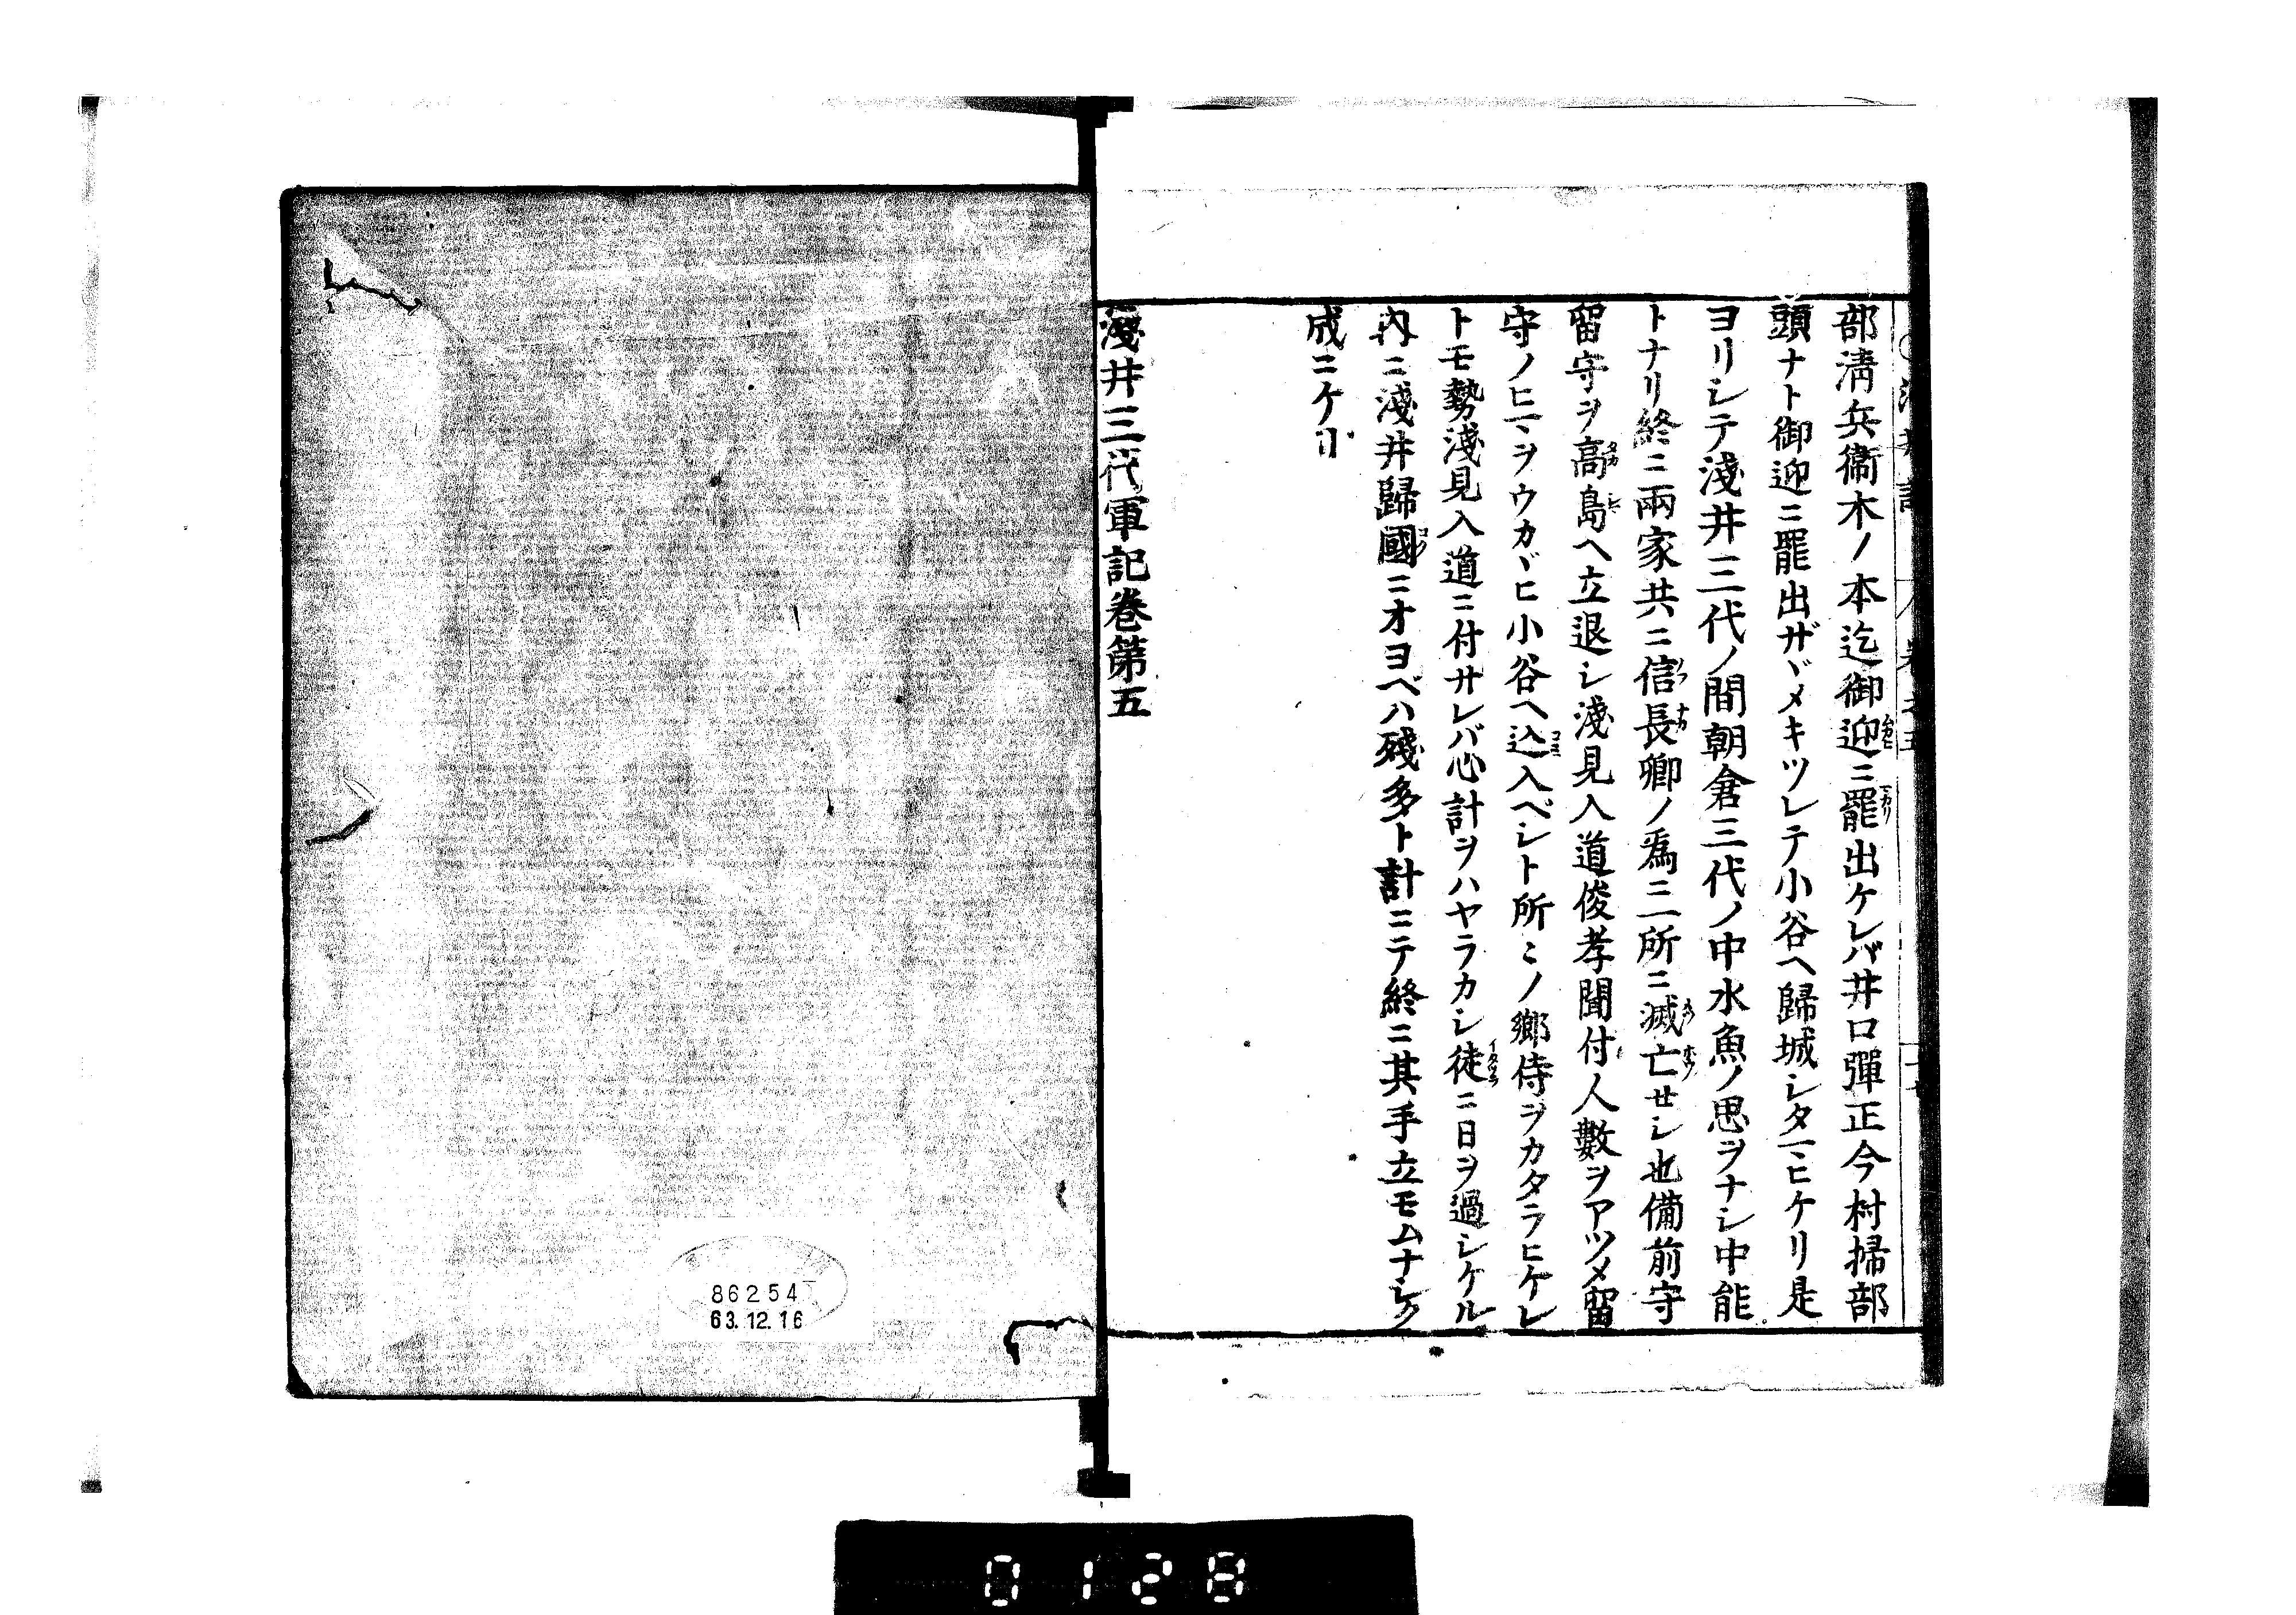 部淸兵衞木ノ本迄御迎ニ罷出ケレバ井口彈正今村掃部
頭ナト御迎ニ罷出ザヾメキツレテ小谷ヘ歸城シタマヒケリ是
ヨリシテ淺井三代ノ間朝倉三代ノ中水魚ノ思ヲナシ中能
トナリ終ニ兩家共ニ信長卿ノ爲ニ一所ニ滅亡セシ也備前守
留守ヲ高島ヘ立退シ淺見入道俊孝聞付人數ヲアツメ留
守ノヒマヲウカヾヒ小谷ヘ込入ベシト所〻ノ鄕侍ヲカタラヒケレ
トモ勢淺見入道ニ付サレバ心計ヲハヤラカシ徒ニ日ヲ過シケル
內ニ淺井歸國ニオヨベハ殘多ト計ニテ終ニ其手立モムナシク
成ニケリ
淺井三代軍記卷第五
86254
63.12.16
0128